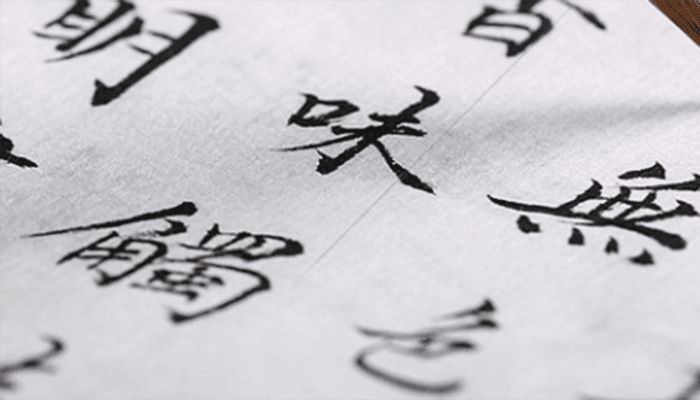 無色
香味觸
明